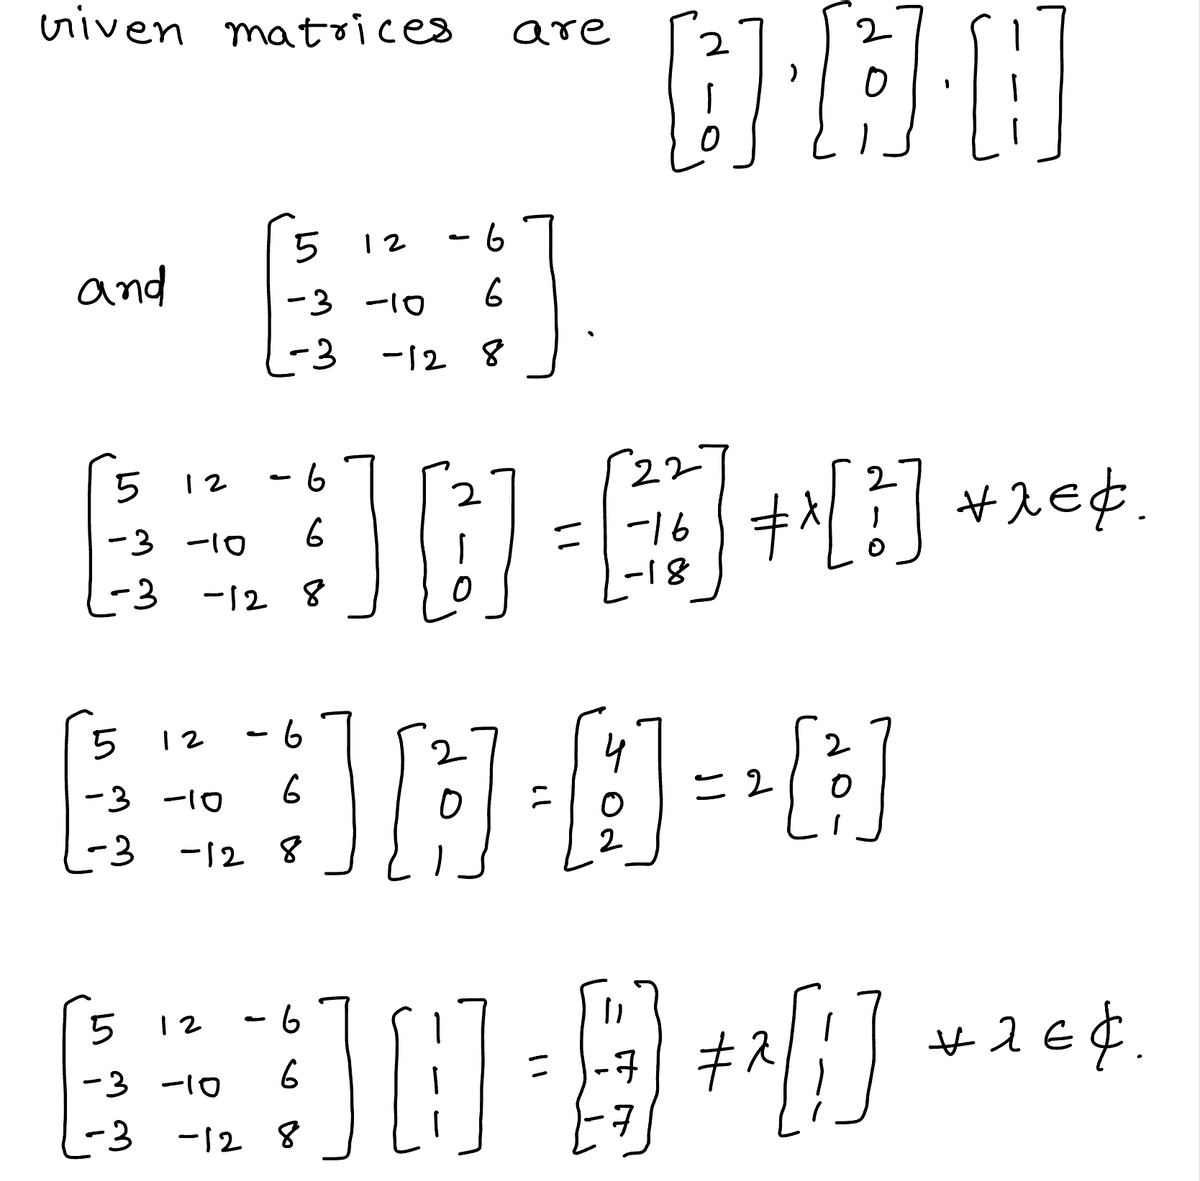 Given matrices are [2 1 0], [2 0 1], [1 1 1]
and [5 12 -6
-3 -10 6
-3 -12 8].
[5 12 -6
-3 -10 6
-3 -12 8] [2 1 0] = [22 -16 -18] ≠ λ[2 1 0] ∀ λ ∈ ₵.
[5 12 -6
-3 -10 6
-3 -12 8] [2 0 1] = [4 0 2] = 2[2 0 1]
[5 12 -6
-3 -10 6
-3 -12 8] [1 1 1] = [11 -7 -7] ≠ λ[1 1 1] ∀ λ ∈ ₵.